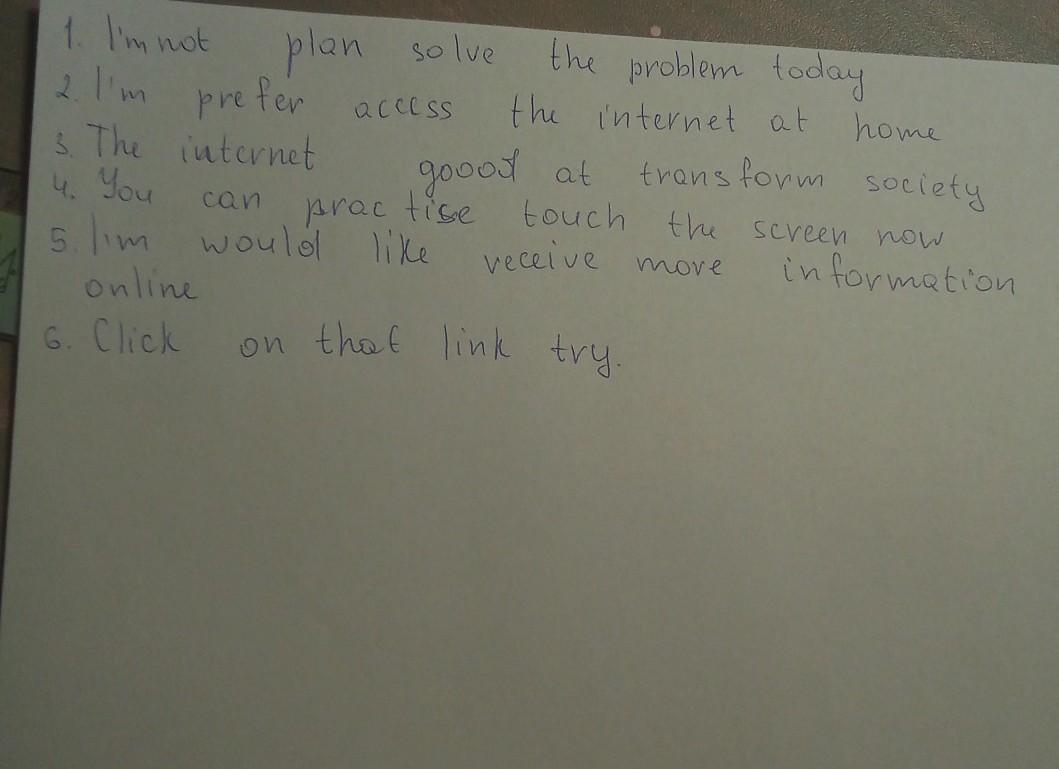 1. I'm not plan solve the problem today
2. I'm prefer access the internet at home
3. The internet goood at transform society
4. You can practise touch the screen now
5. I'm would like receive more information
online
6. Click on that link try.